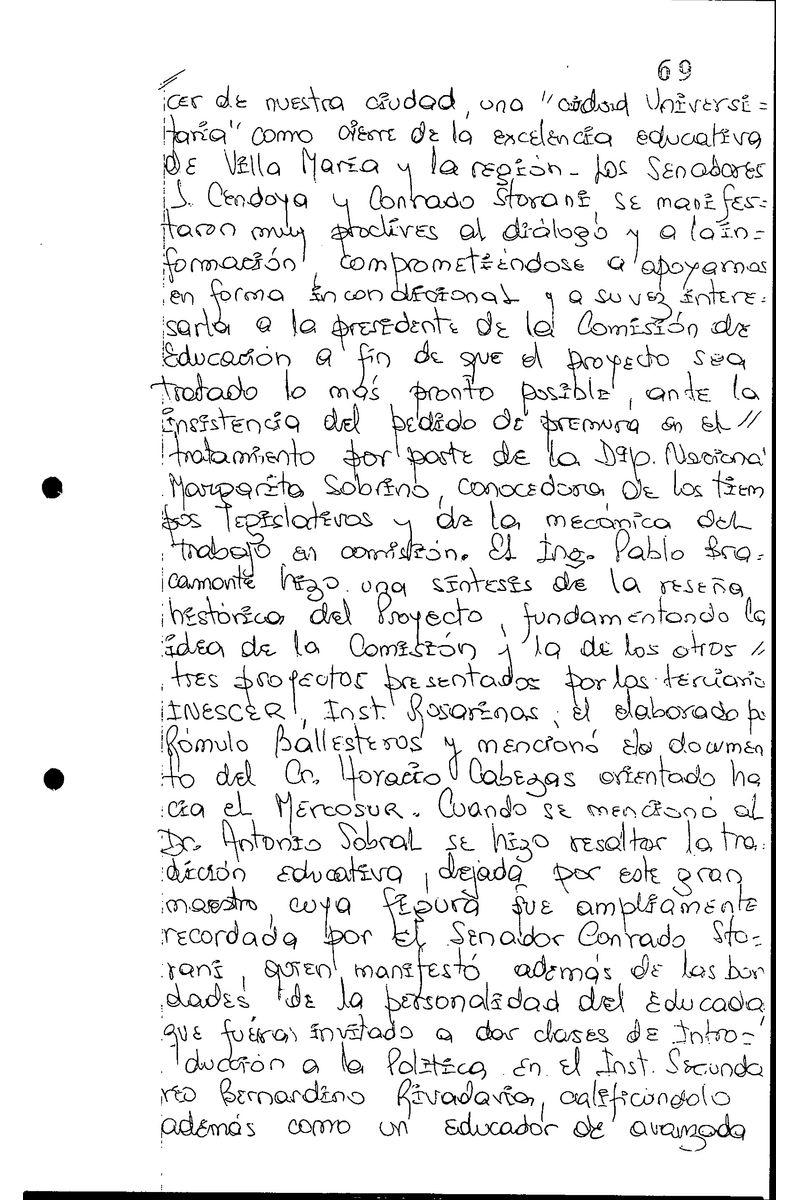 69
//
cer de nuestra ciudad, una "ciudad Universi=
taria" como cierre de la excelencia educativa
de Villa María y la región - Los Senadores
J. Cendoya y Conrado Storani, se manifes=
taron muy proclives al diálogo y a la in=
formación, comprometiéndose a apoyarnos
en forma incondicional y a su vez intere=
sarla a la presidente de la Comisión de
Educación a fin de que el proyecto sea
tratado lo más pronto posible, ante la
insistencia del pedido de premura en el //
tratamiento por parte de la Dip. Nacional
Margarita Sobrino, conocedora de los tiem
pos legislativos y de la mecánica del
trabajo en comisión. El Ing. Pablo Bra=
camonte hizo una síntesis de la reseña
histórica del Proyecto, fundamentando la
idea de la Comisión y la de los otros //
tres proyectos presentados por los terciario
INESCER, Inst. Rosarinas, el elaborado p.
Rómulo Ballesteros y mencionó el documen
to del Cr. Horacio Cabezas orientado ha
cia el Mercosur. Cuando se mencionó al
Dr. Antonio Sobral se hizo resaltar la tra=
dición educativa, dejada por este gran
maestro, cuya figura fue ampliamente
recordada por el Senador Conrado Sto=
rani, quien manifestó además de las bon
dades de la personalidad del Educado
que fuera invitado a dar clases de Intro=
ducción a la Política en el Inst. Secunda
rio Bernardino Rivadavia, calificándolo
además como un educador de avanzada